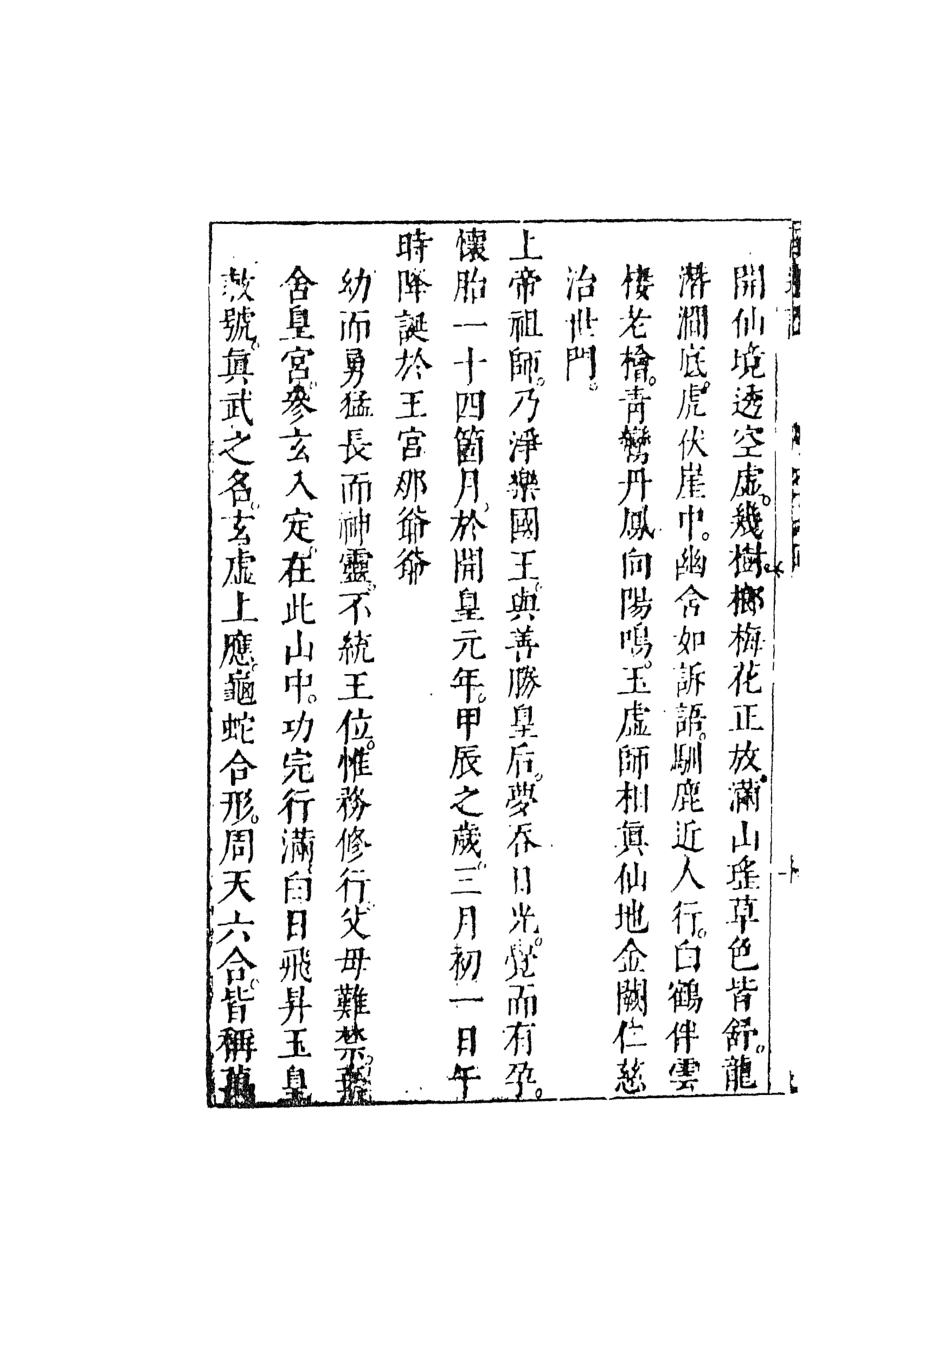 開仙境透空虛。幾樹榔梅花正放。滿山瑤草色皆舒。龍
潛澗底。虎伏崖中。幽含如訴語。馴鹿近人行。白鶴伴雲
棲老檜。青鸞丹鳳向陽鳴。玉虛師相眞仙地金闕仁慈
治世門。
上帝祖師。乃淨樂國王。與善勝皇后。夢吞日光。覺而有孕。
懷胎一十四箇月。於開皇元年。甲辰之歲。三月初一日午
時降誕於王宮那爺爺
幼而勇猛長而神靈。不統王位。惟務修行。父母難禁。
舍皇宮。參玄入定。在此山中。功完行滿。白日飛昇玉皇
敕號。眞武之名。玄虛上應。龜蛇合形。周天六合。皆稱萬